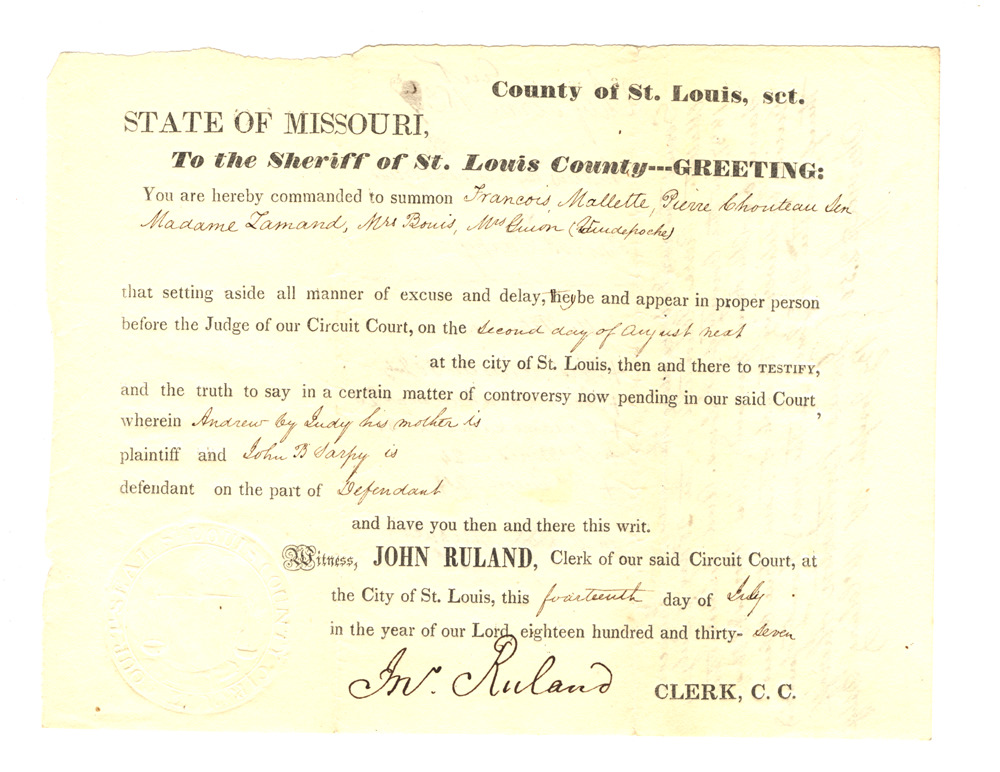 County of St. Louis, sct.
STATE OF MISSOURI,
To the Sheriff of St. Louis County---GREETING:
You are hereby commanded to summon Francois, Mallette, Pierre Chouteau Sen
Madame Lamand, Mrs Bouis, Mrs Guion (Viudepoche)
that setting aside all manner of excuse and delay, they be and appear in proper person
before the Judge of our Circuit Court, on the second day of August next
at the city of St. Louis, then and there to TESTIFY,
and the truth to say in a certain matter of controversy now pending in our said Court,
wherein Andrew by Judy his mother is
plaintiff and John B Sarpy is
defendant on the part of Defendant
and have you then and there this writ.
Witness, JOHN RULAND, Clerk of our said Circuit Court, at
the City of St. Louis, this fourteenth day of July
in the year of our Lord, eighteen hundred and thirty-seven
Jno. Ruland CLERK, C. C.